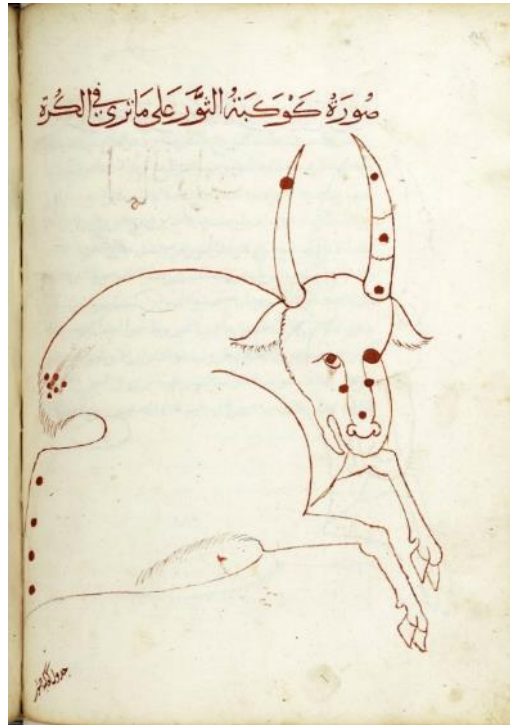 صُورَةُ كَوْكَبَةُ الثَّوْر عَلى مَا يُرى فِي الكُرَة